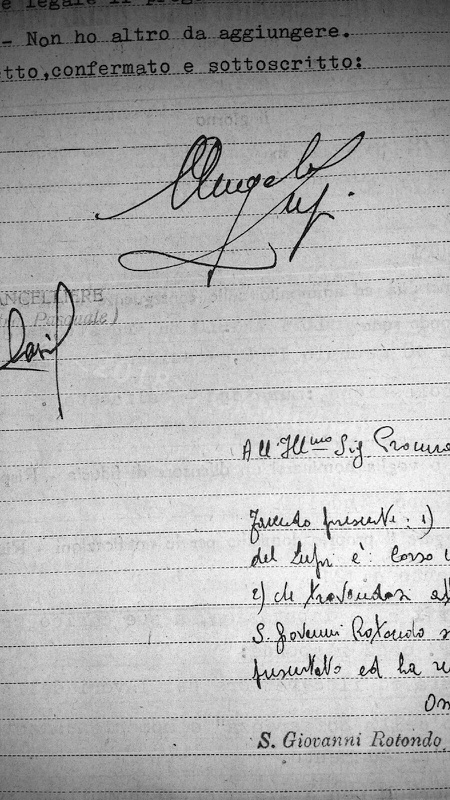 e legale il prog
- Non ho altro da aggiungere.
etto,confermato e sottoscritto:
Angelo
Lupi
ANCELLIERE
Pasquale)
All'Ill.mo Sig Procura
facendo presente: 1)
del Lupi è: Corso
2) che trovandosi
S. Giovanni Rotondo
presentato ed ha
S. Giovanni Rotondo